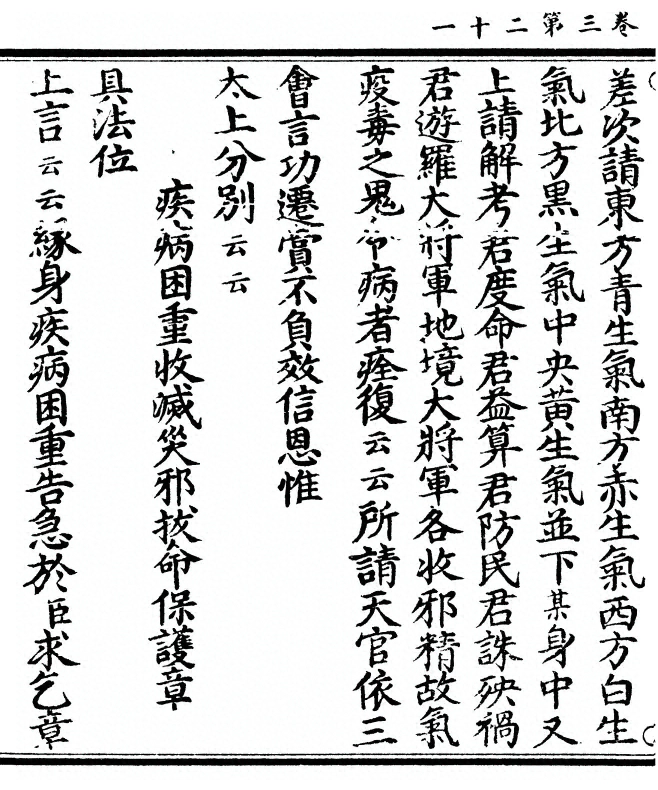 卷三第二十一
差次請東方青生氣南方赤生氣西方白生
氣北方黑生氣中央黃生氣並下某身中又
上請解考君度命君益算君防民君誅殃禍
君遊羅大將軍地境大將軍各收邪精故氣
疫毒之鬼令病者痊復云云所請天官依三
會言功遷賞不負效信恩惟
太上分別云云
疾病困重收滅災邪拔命保護章
具法位
上言云云緣身疾病困重告急於臣求乞章